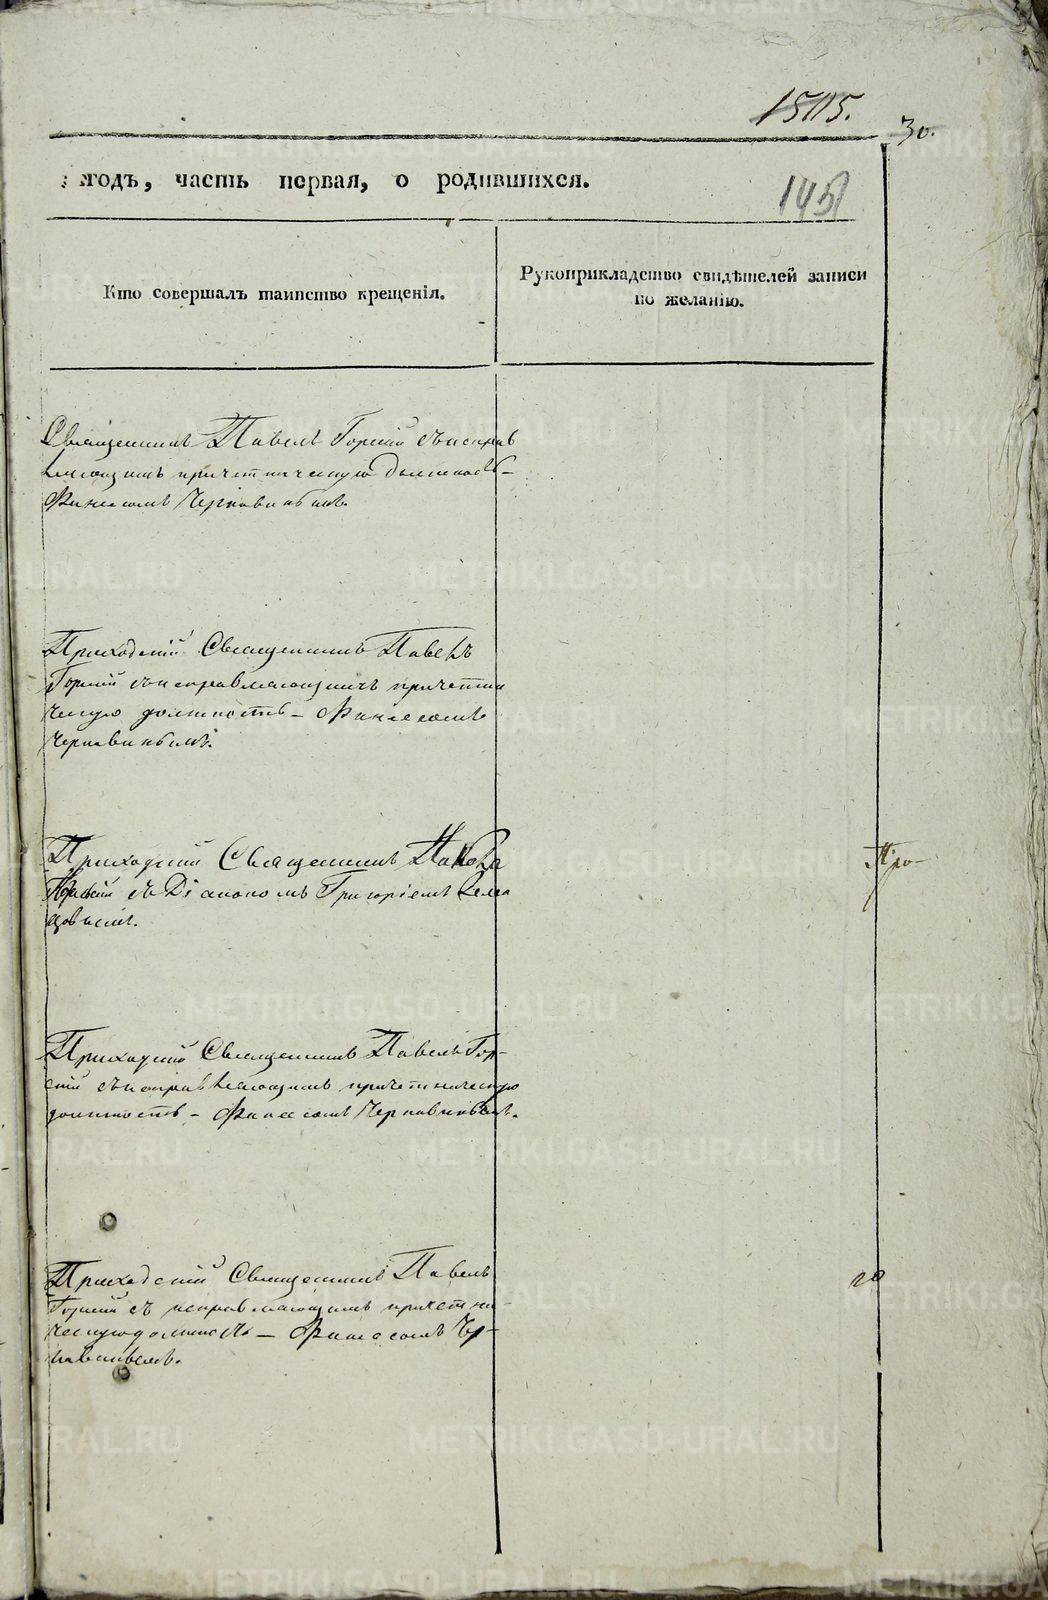 1505.
30.
годъ, часть первая, о родившихся.
145
Кто совершалъ таинство крещенія.
Рукоприкладство свидѣтелей записи
по желанію.
Священникъ Павелъ Горный съ исправ
ляющимъ причетническую должность
Финеесомъ Чернавинымъ.
Приходскій Священникъ Павелъ
съ исправляющимъ причетни
ческую должность - Финеесомъ
Чернавинымъ.
Приходскій Священникъ
съ Діакономъ Григоріемъ
Приходскій Священникъ Павелъ Гор-
съ исправляющимъ причетническую
должность - Финеесомъ Чернавинымъ.
Приходскій Священникъ Павелъ
съ исправляющимъ причетни-
ческую должность - Финеесомъ Чер-
навинымъ.
METRIKI.GASO-URAL.RU